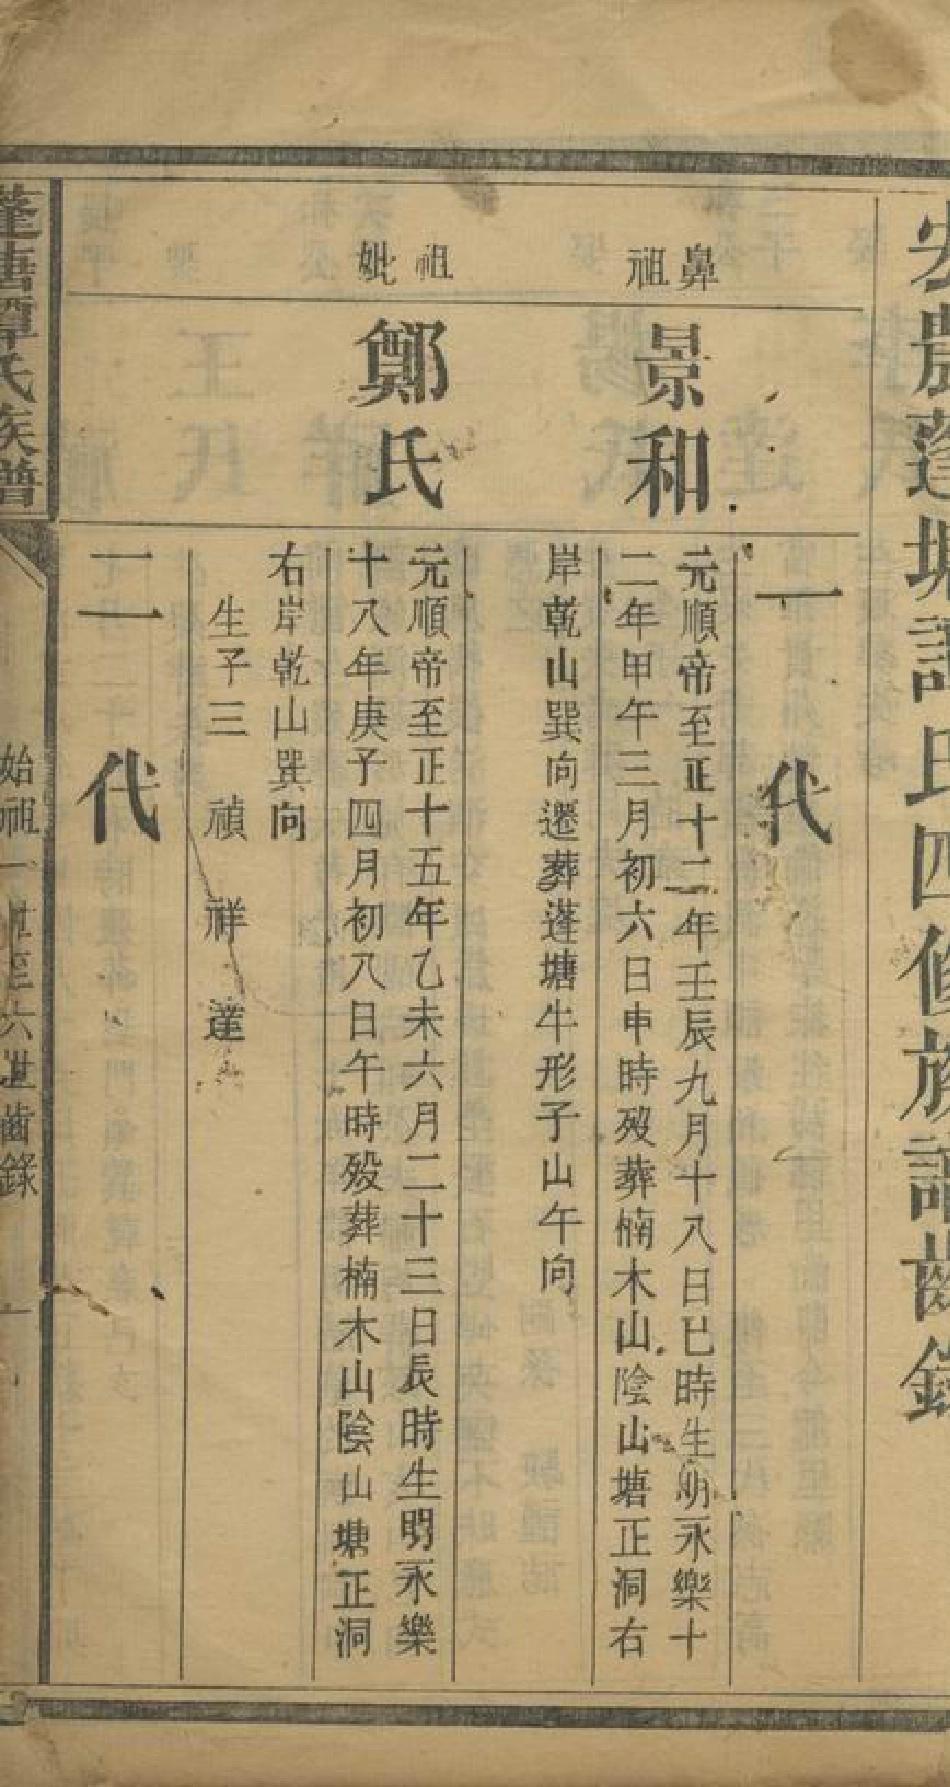 宏農蓬塘譚氏四修族譜齒錄
一代
鼻祖
景和
元順帝至正十二年壬辰九月十八日巳時生明永樂十
二年甲午三月初六日申時歿葬楠木山陰山塘正洞右
岸乾山巽向遷葬蓬塘牛形子山午向
祖妣
鄭氏
元順帝至正十五年乙未六月二十三日辰時生明永樂
十八年庚子四月初八日午時歿葬楠木山陰山塘正洞
右岸乾山巽向
生子三 禎 祥 達
二代
蓬塘譚氏族譜
始祖一世至六世齒錄
一